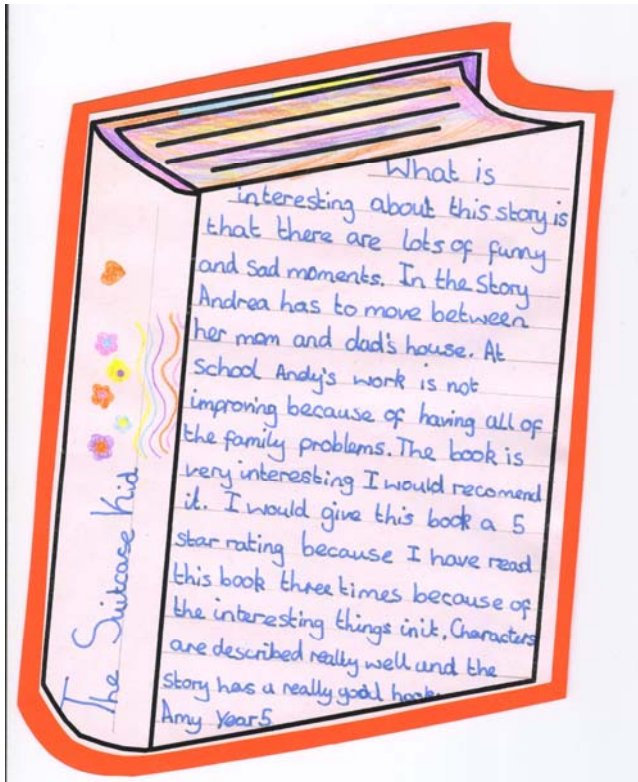 What is
interesting about this story is
that there are lots of funny
and sad moments. In the Story
Andrea has to move between
her mom and dad's house. At
school Andy's work is not
improving because of having all of
the family problems. The book is
very interesting I would recomend
it. I would give this book a 5
star rating because I have read
this book three times because of
the interesting things in it. Characters
are described really well and the
story has a really good hook
Amy Year 5
The Suitcase Kid